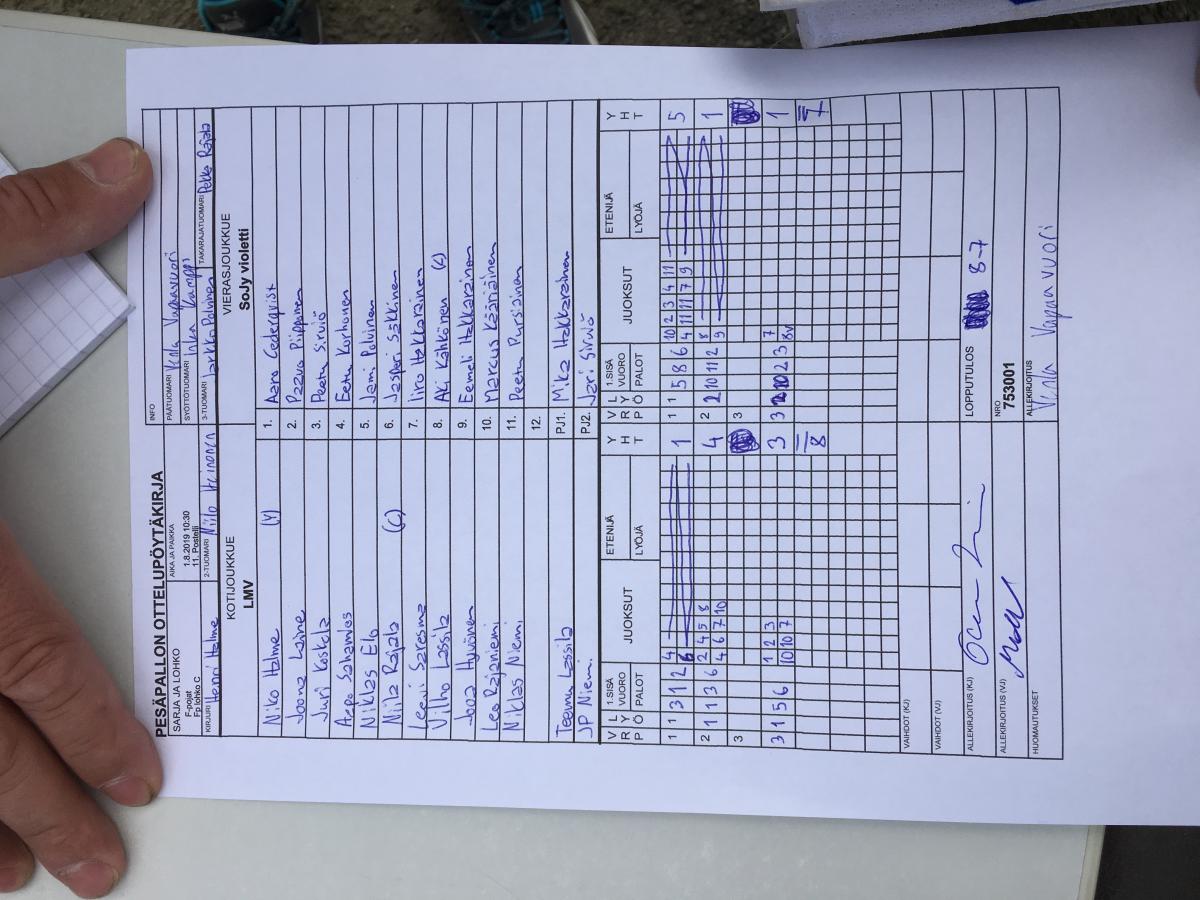 PESÄPALLON OTTELUPÖYTÄKIRJA
INFO
SARJA JA LOHKO
F-pojat
Fp lohko C
AIKA JA PAIKKA
1.8.2019 10:30
11. Postelli
PÄÄTUOMARI Venla Vappavuori
SYÖTTÖTUOMARI Inka Kamppi
KIRJURI Henri Halme
2-TUOMARI Niilo Heinonen
3-TUOMARI Jarkko Polvinen
TAKARAJATUOMARI Pekka Rajala
KOTIJOUKKUE
LMV
VIERASJOUKKUE
SoJy violetti
Niko Halme (Y) 1. Aaro Cederqvist
Joona Laine 2. Paavo Piipponen
Juri Koskela 3. Peetu Sirviö
Aapo Sahamies 4. Eetu Korhonen
Niklas Elo 5. Jami Polvinen
Niila Rajala (C) 6. Jasperi Säkkinen
Leevi Saresma 7. Iiro Hakkarainen
Vilho Lassila 8. Aki Kähkönen (C)
Jooa Hyvönen 9. Eemeli Hakkarainen
Leo Rajaniemi 10. Marcus Kääriäinen
Niklas Niemi 11. Peetu Pursiainen
12.
Teemu Lassila PJ1. Mika Hakkarainen
JP Niemi PJ2. Jari Sirviö
V R LYÖ 1.SISÄ VUORO PALOT JUOKSUT ETENIJÄ LYÖJÄ YHT V R LYÖ 1.SISÄ VUORO PALOT JUOKSUT ETENIJÄ LYÖJÄ YHT
1 1 3 1 2 4 1 1 1 5 8 6 10 2 3 4 11 5
6 4 11 11 7 9
2 1 1 3 6 2 4 5 8 4 2 2 10 11 2 8 1
4 6 7 10 9
3 3
3 1 5 6 1 2 3 3 3 2 3 7 1
10 10 7 8v
8 7
VAIHDOT (KJ)
VAIHDOT (VJ)
ALLEKIRJOITUS (KJ)
LOPPUTULOS 8-7
ALLEKIRJOITUS (VJ)
NRO
753001
HUOMAUTUKSET
ALLEKIRJOITUS
Venla Vappavuori